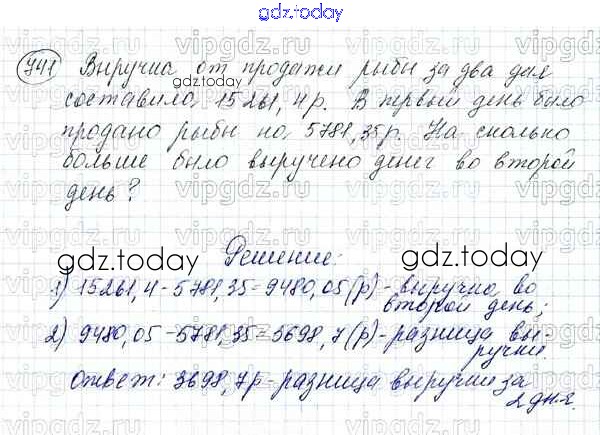 gdz.today
741 Выручка от продажи рыбы за два дня
gdz.today
составила 15261,4р. В первый день было
продано рыбы на 5781,35р. На сколько
больше было выручено денег во второй
день?
Решение:
gdz.today
gdz.today
1) 15261,4-5781,35=9480,05(р)-выручка во
второй день;
2) 9480,05-5781,35=3698,7(р)-разница вы-
ручки.
Ответ: 3698,7р-разница выручки за
2 дня.
vipgdz.ru